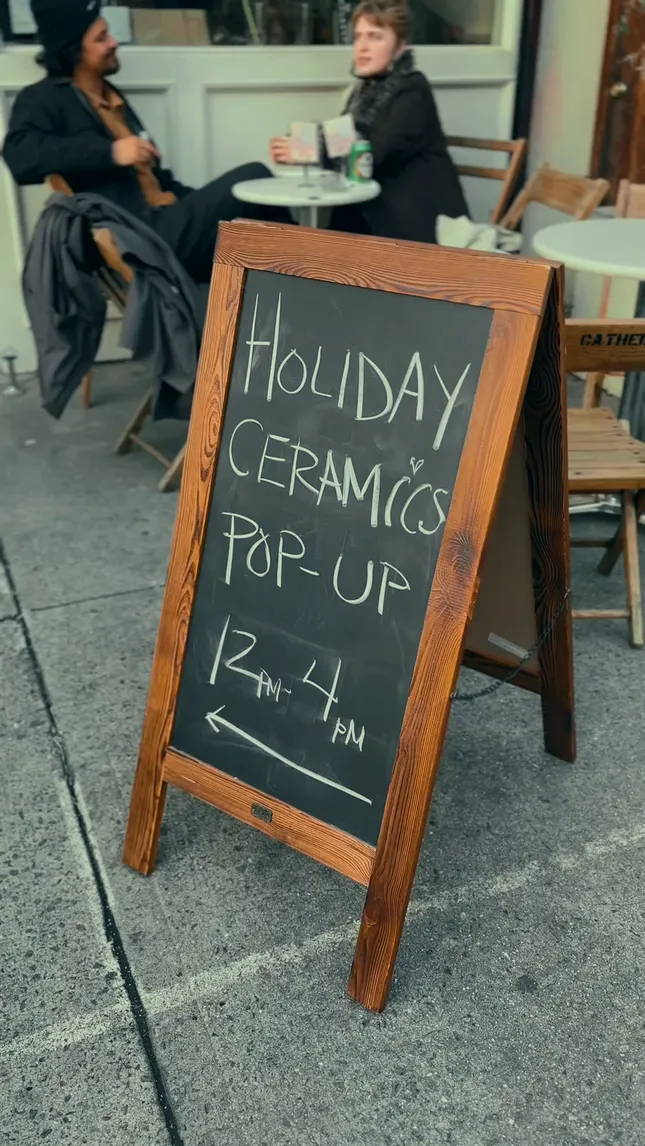 HOLIDAY
CERAMICS
POP-UP
12PM-4PM